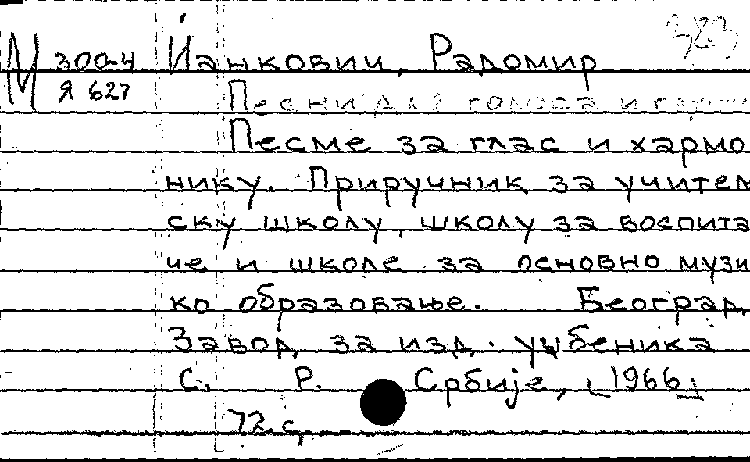 323
М 300-4 Йанкович, Радомир
Я 627 Песни для голоса и
Песме за глас и хармо
нику. Приручник за учител
ску школу, школу за воспита
че и школе за основно музи
ко образовање. Београд,
Завод за изд. уџбеника
С. Р. Србије, [1966]
72 с.